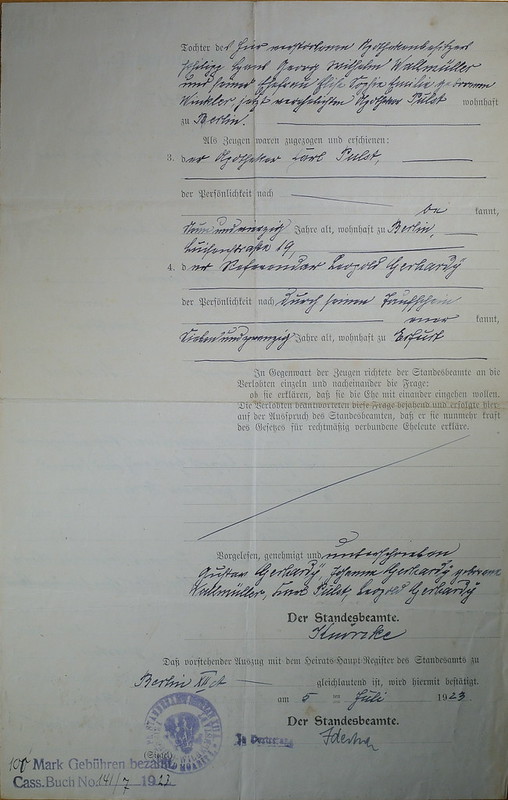 Tochter des hier verstorbenen Apothekenbesitzers
Philipp Georg Wilhelm Wallmüller
und seiner Ehefrau Elise Sophie Emilie geborenen
Winkler, jetzt verehelichten Apotheker Pulst wohnhaft
zu Berlin.
Als Zeugen waren zugezogen und erschienen:
3. der Apotheker Carl Pulst,
der Persönlichkeit nach
be kannt,
Neunundvierzig Jahre alt, wohnhaft zu Berlin,
Luisenstraße 19,
4. der Referendar Leopold Gerhardy
der Persönlichkeit nach durch seinen Taufschein
aner kannt,
Siebenundzwanzig Jahre alt, wohnhaft zu Erfurt
In Gegenwart der Zeugen richtete der Standesbeamte an die
Verlobten einzeln und nacheinander die Frage:
ob sie erklären, daß sie die Ehe mit einander eingehen wollen.
Die Verlobten beantworteten diese Frage bejahend und erfolgte hier-
auf der Ausspruch des Standesbeamten, daß er sie nunmehr kraft
des Gesetzes für rechtmäßig verbundene Eheleute erkläre.
Vorgelesen, genehmigt und unterschrieben
Gustav Gerhardy, Johanna Gerhardy geborene
Wallmüller, Carl Pulst, Leopold Gerhardy
Der Standesbeamte.
Knörcke
Daß vorstehender Auszug mit dem Heirats-Haupt-Register des Standesamts zu
Berlin XII gleichlautend ist, wird hiermit bestätigt.
am 5ten Juli 1923
Der Standesbeamte.
(Siegel)
In Vertretung
100 Mark Gebühren bezahlt
Cass. Buch No 141/7 1923